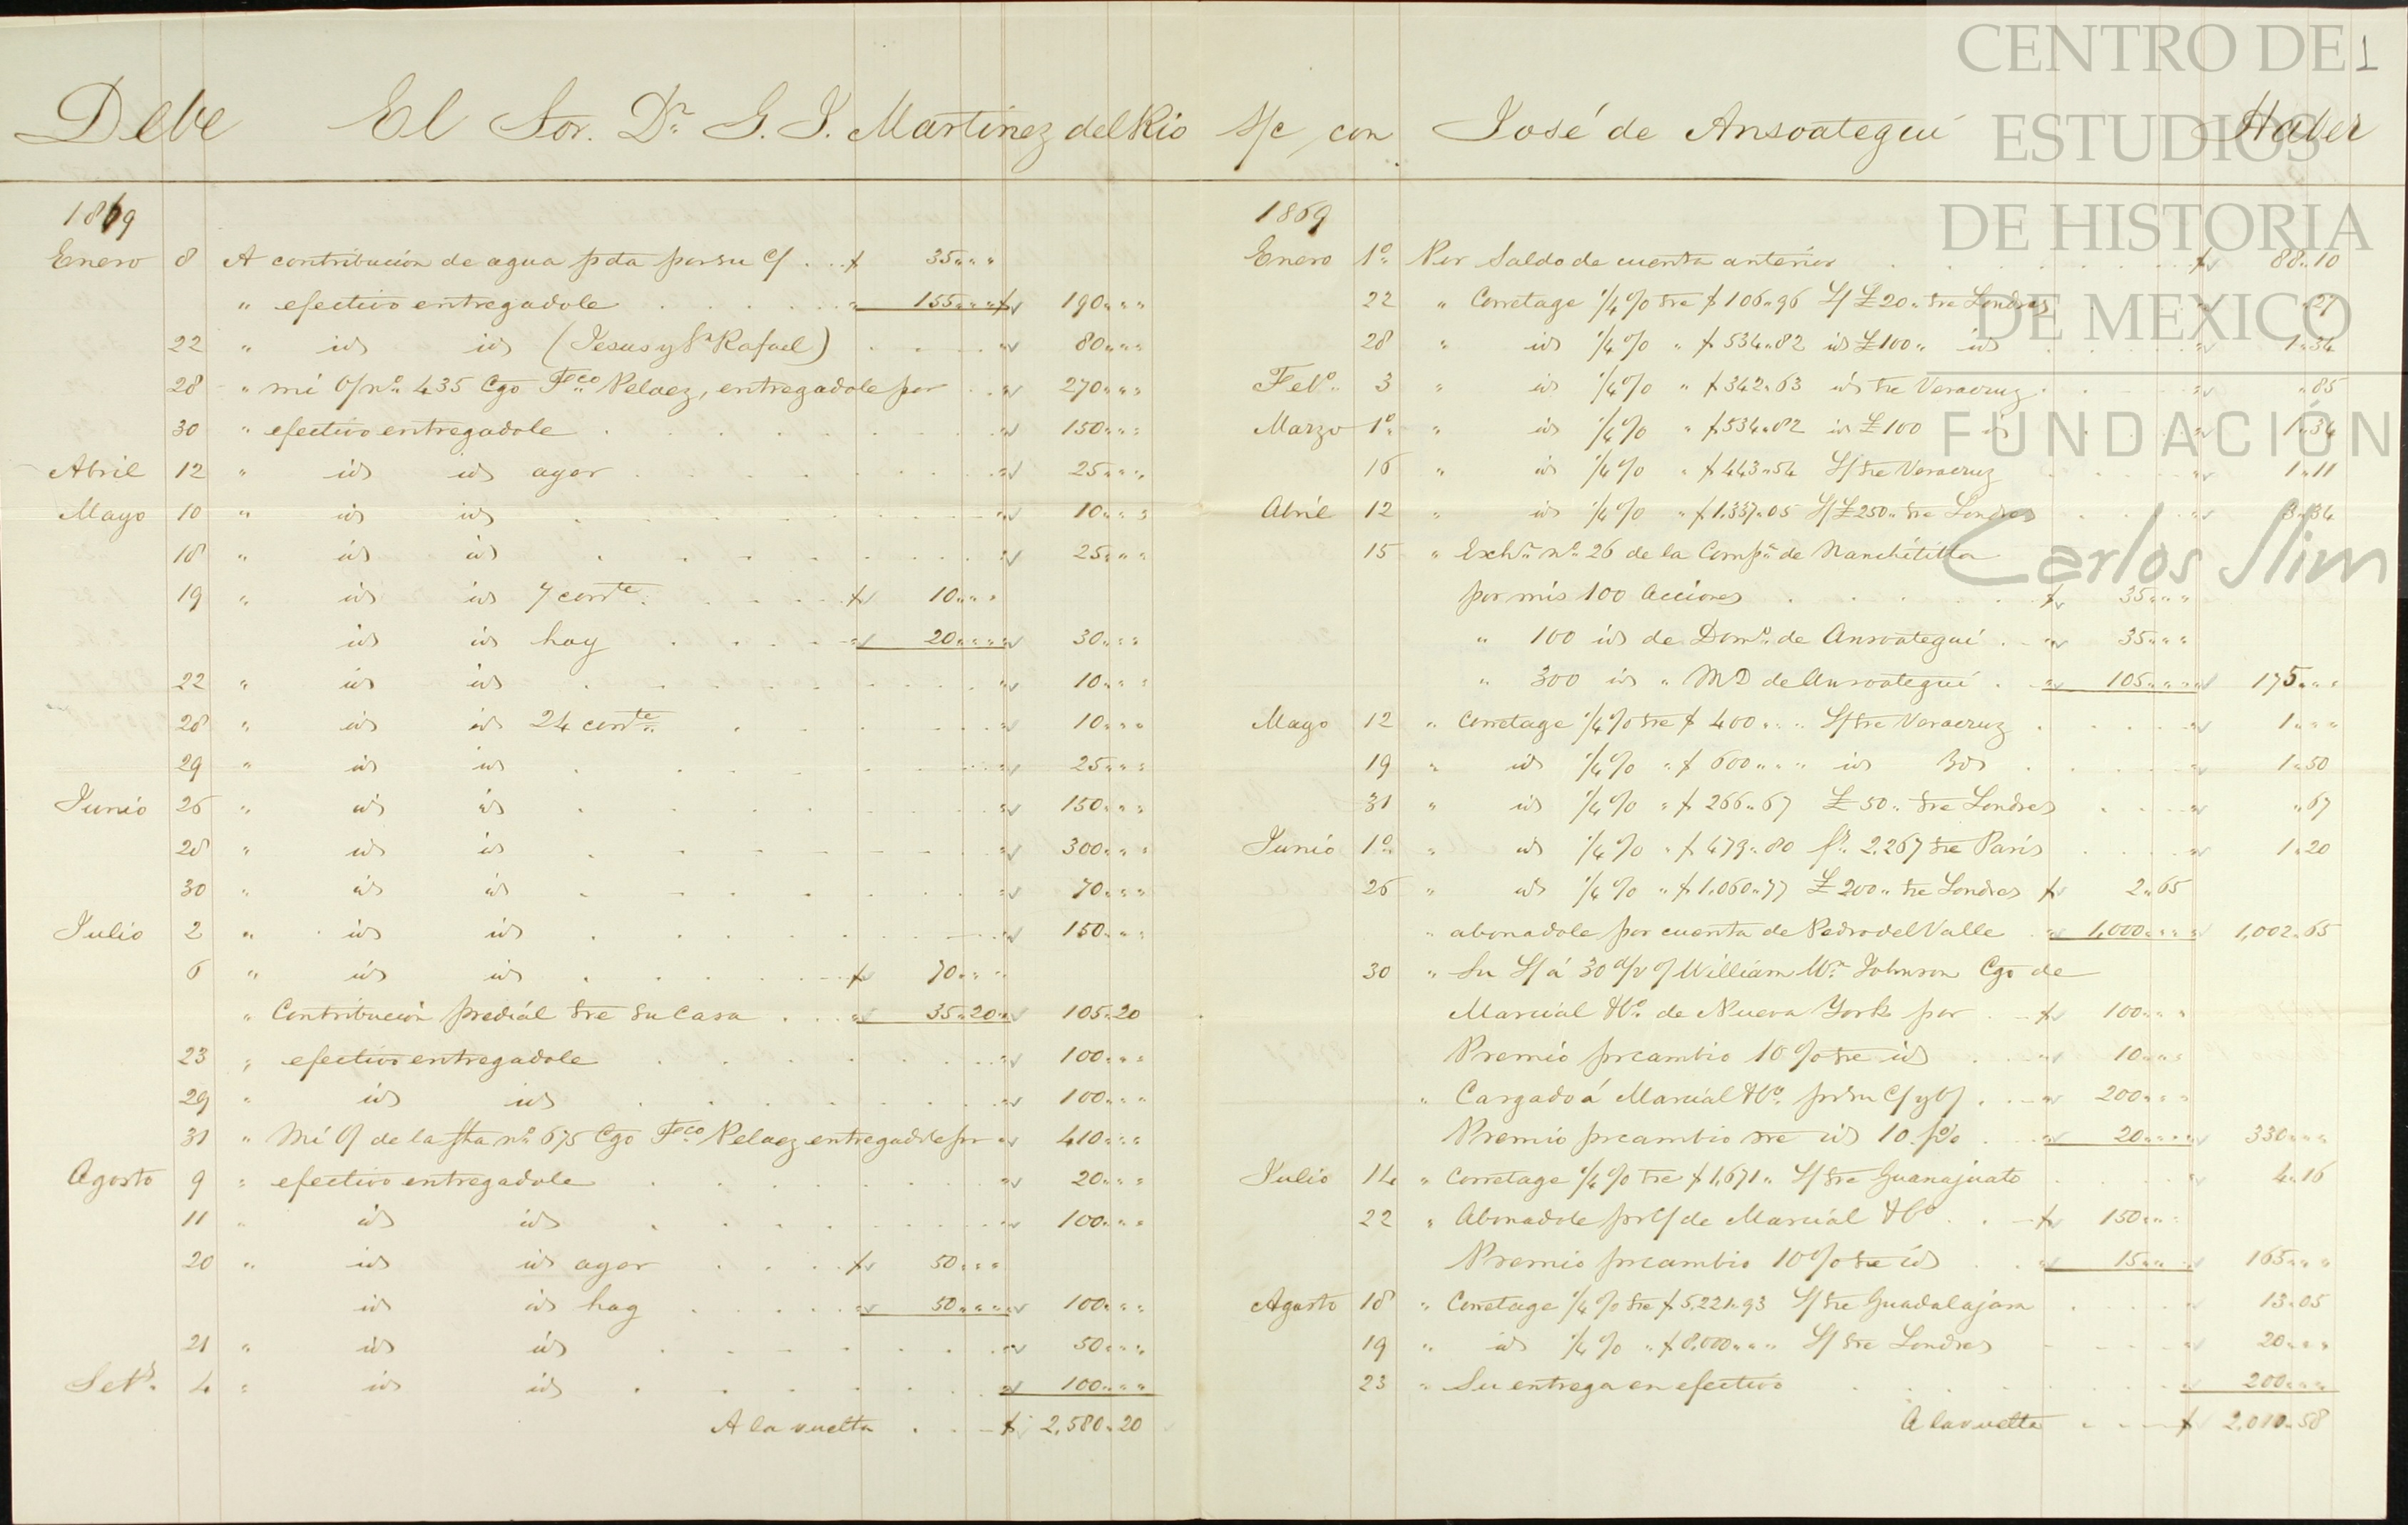 1
Debe El Sor. Dr. G. J. Martinez del Rio S/c con José de Ansoategui Haber
1869
Enero 8 A contribucion de agua pda por su c/ $ 35 " "
" efectivo entregadole " 155 " " $ 190 " "
22 " id id (Jesus y Sn Rafael) " 80 " "
28 " mi O/ no. 435 Cgo Fco. Pelaez, entregadole por " 270 " "
30 " efectivo entregadole " 150 " "
Abril 12 " id id ayer " 25 " "
Mayo 10 " id id " 10 " "
18 " id id " 25 " "
19 " id id 7 corrte. $ 10 " "
id id hoy " 20 " " " 30 " "
22 " id id " 10 " "
28 " id id 24 corrte. " 10 " "
29 " id id " 25 " "
Junio 26 " id id " 150 " "
28 " id id " 300 " "
30 " id id " 70 " "
Julio 2 " id id " 150 " "
6 " id id $ 70 " "
" Contribucion predial sre su Casa " 35 " 20 " 105 " 20
23 " efectivo entregadole " 100 " "
29 " id id " 100 " "
31 " Mi O/ de la fha no. 675 Cgo Fco Pelaez entregadole pr " 410 " "
Agosto 9 " efectivo entregadole " 20 " "
11 " id id " 100 " "
20 " id id ayer $ 50 " "
id id hoy " 50 " " " 100 " "
21 " id id " 50 " "
Set. 4 " id id " 100 " "
A la vuelta $ 2,580 " 20
1869
Enero 1o. Por Saldo de cuenta anterior $ 88 " 10
22 " Corretage 1/4 % sre $ 106 " 96 L/ £ 20 " sre Londres " " 27
28 " id 1/4 % " $ 534 " 82 id £ 100 " id " 1 " 34
Febo. 3 " id 1/4 % " $ 342 " 63 id sre Veracruz " " 85
Marzo 1o. " id 1/4 % " $ 534 " 82 id £ 100 id " 1 " 34
16 " id 1/4 % " $ 443 " 54 L/ sre Veracruz " 1 " 11
Abril 12 " id 1/4 % " $ 1.337 " 05 L/ £ 250 " sre Londres " 3 " 34
15 " Exhn. no. 26 de la Compa. de Nanchititla
por mis 100 Acciones $ 35 " "
" 100 id de Domo. de Ansoategui " 35 " "
" 300 id " MD de Ansoategui " 105 " " " 175 " "
Mayo 12 " Corretage 1/4 % sre $ 400 " " L/ sre Veracruz " 1 " "
19 " id 1/4 % " $ 600 " " id id " 1 " 50
31 " id 1/4 % " $ 266 " 67 £ 50 " sre Londres " " 67
Junio 1o. " id 1/4 % " $ 479 " 80 fs. 2.267 sre Paris " 1 " 20
26 " id 1/4 % " $ 1.060 " 77 £ 200 " sre Londres $ 2 " 65
" abonadole por cuenta de Pedro del Valle " 1,000 " " " 1,002 " 65
30 " Su L/ á 30 d/v o/ William Wn. Johnson Cgo de
Marcial & Co. de Nueva York por $ 100 " "
Premio pr cambio 10 % sre id " 10 " "
" Cargado á Marcial & Co. pr su c/ y O/ " 200 " "
Premio pr cambio sre id 10 p% " 20 " " " 330 " "
Julio 14 " Corretage 1/4 % sre $ 1,671 " L/ sre Guanajuato " 4 " 16
22 " Abonadole pr c/ de Marcial & Co $ 150 " "
Premio pr cambio 10 % sre id " 15 " " " 165 " "
Agosto 18 " Corretage 1/4 % sre $ 5,221 " 93 L/ sre Guadalajara " 13 " 05
19 " id 1/4 % " $ 8,000 " " L/ sre Londres " 20 " "
23 " Su entrega en efectivo " 200 " "
A la vuelta $ 2,010 " 58
CENTRO DE
ESTUDIOS
DE HISTORIA
DE MEXICO
FUNDACIÓN
Carlos Slim